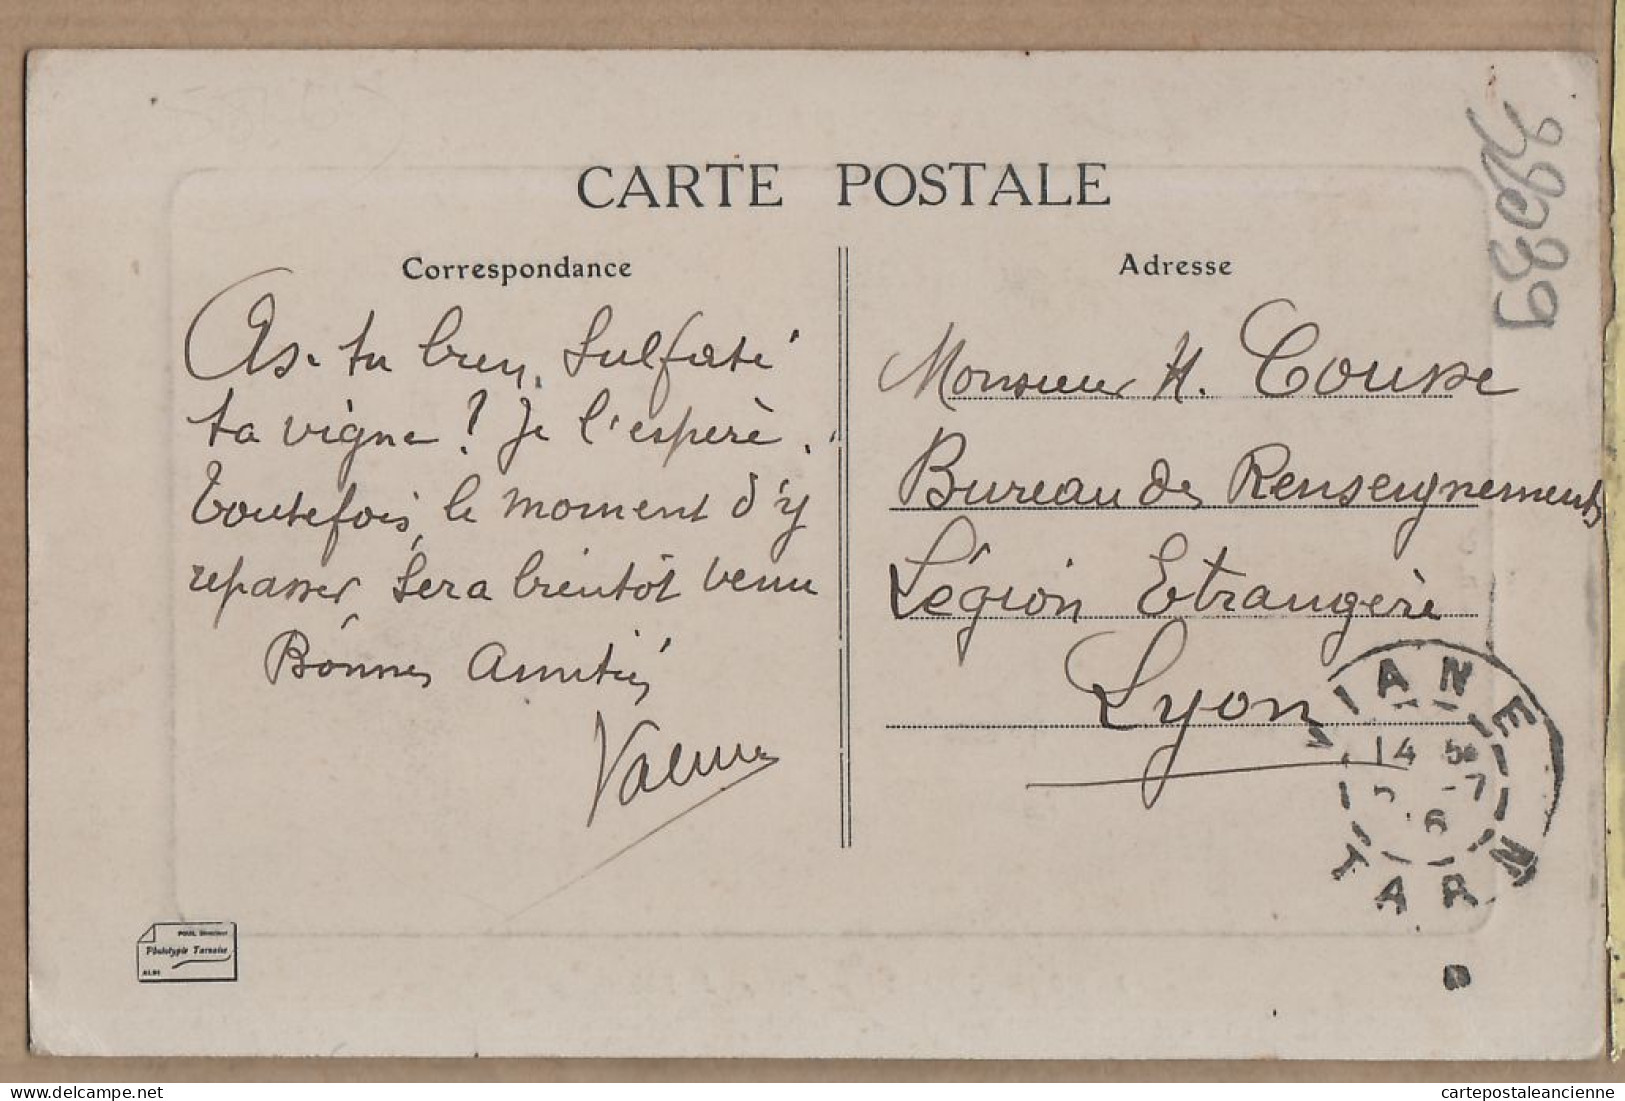 CARTE POSTALE
Correspondance
As-tu bien sulfaté
ta vigne ? Je l'espère.
Toutefois, le moment d'y
repasser, sera bientôt venu
Bonnes Amitiés
Adresse
Monsieur H.
Bureau de Renseignements
Légion Etrangère
Lyon
VIANE
14
TARN
POUL Directeur
Phototypie Tarnaise
ALBI
cartepostaleancienne